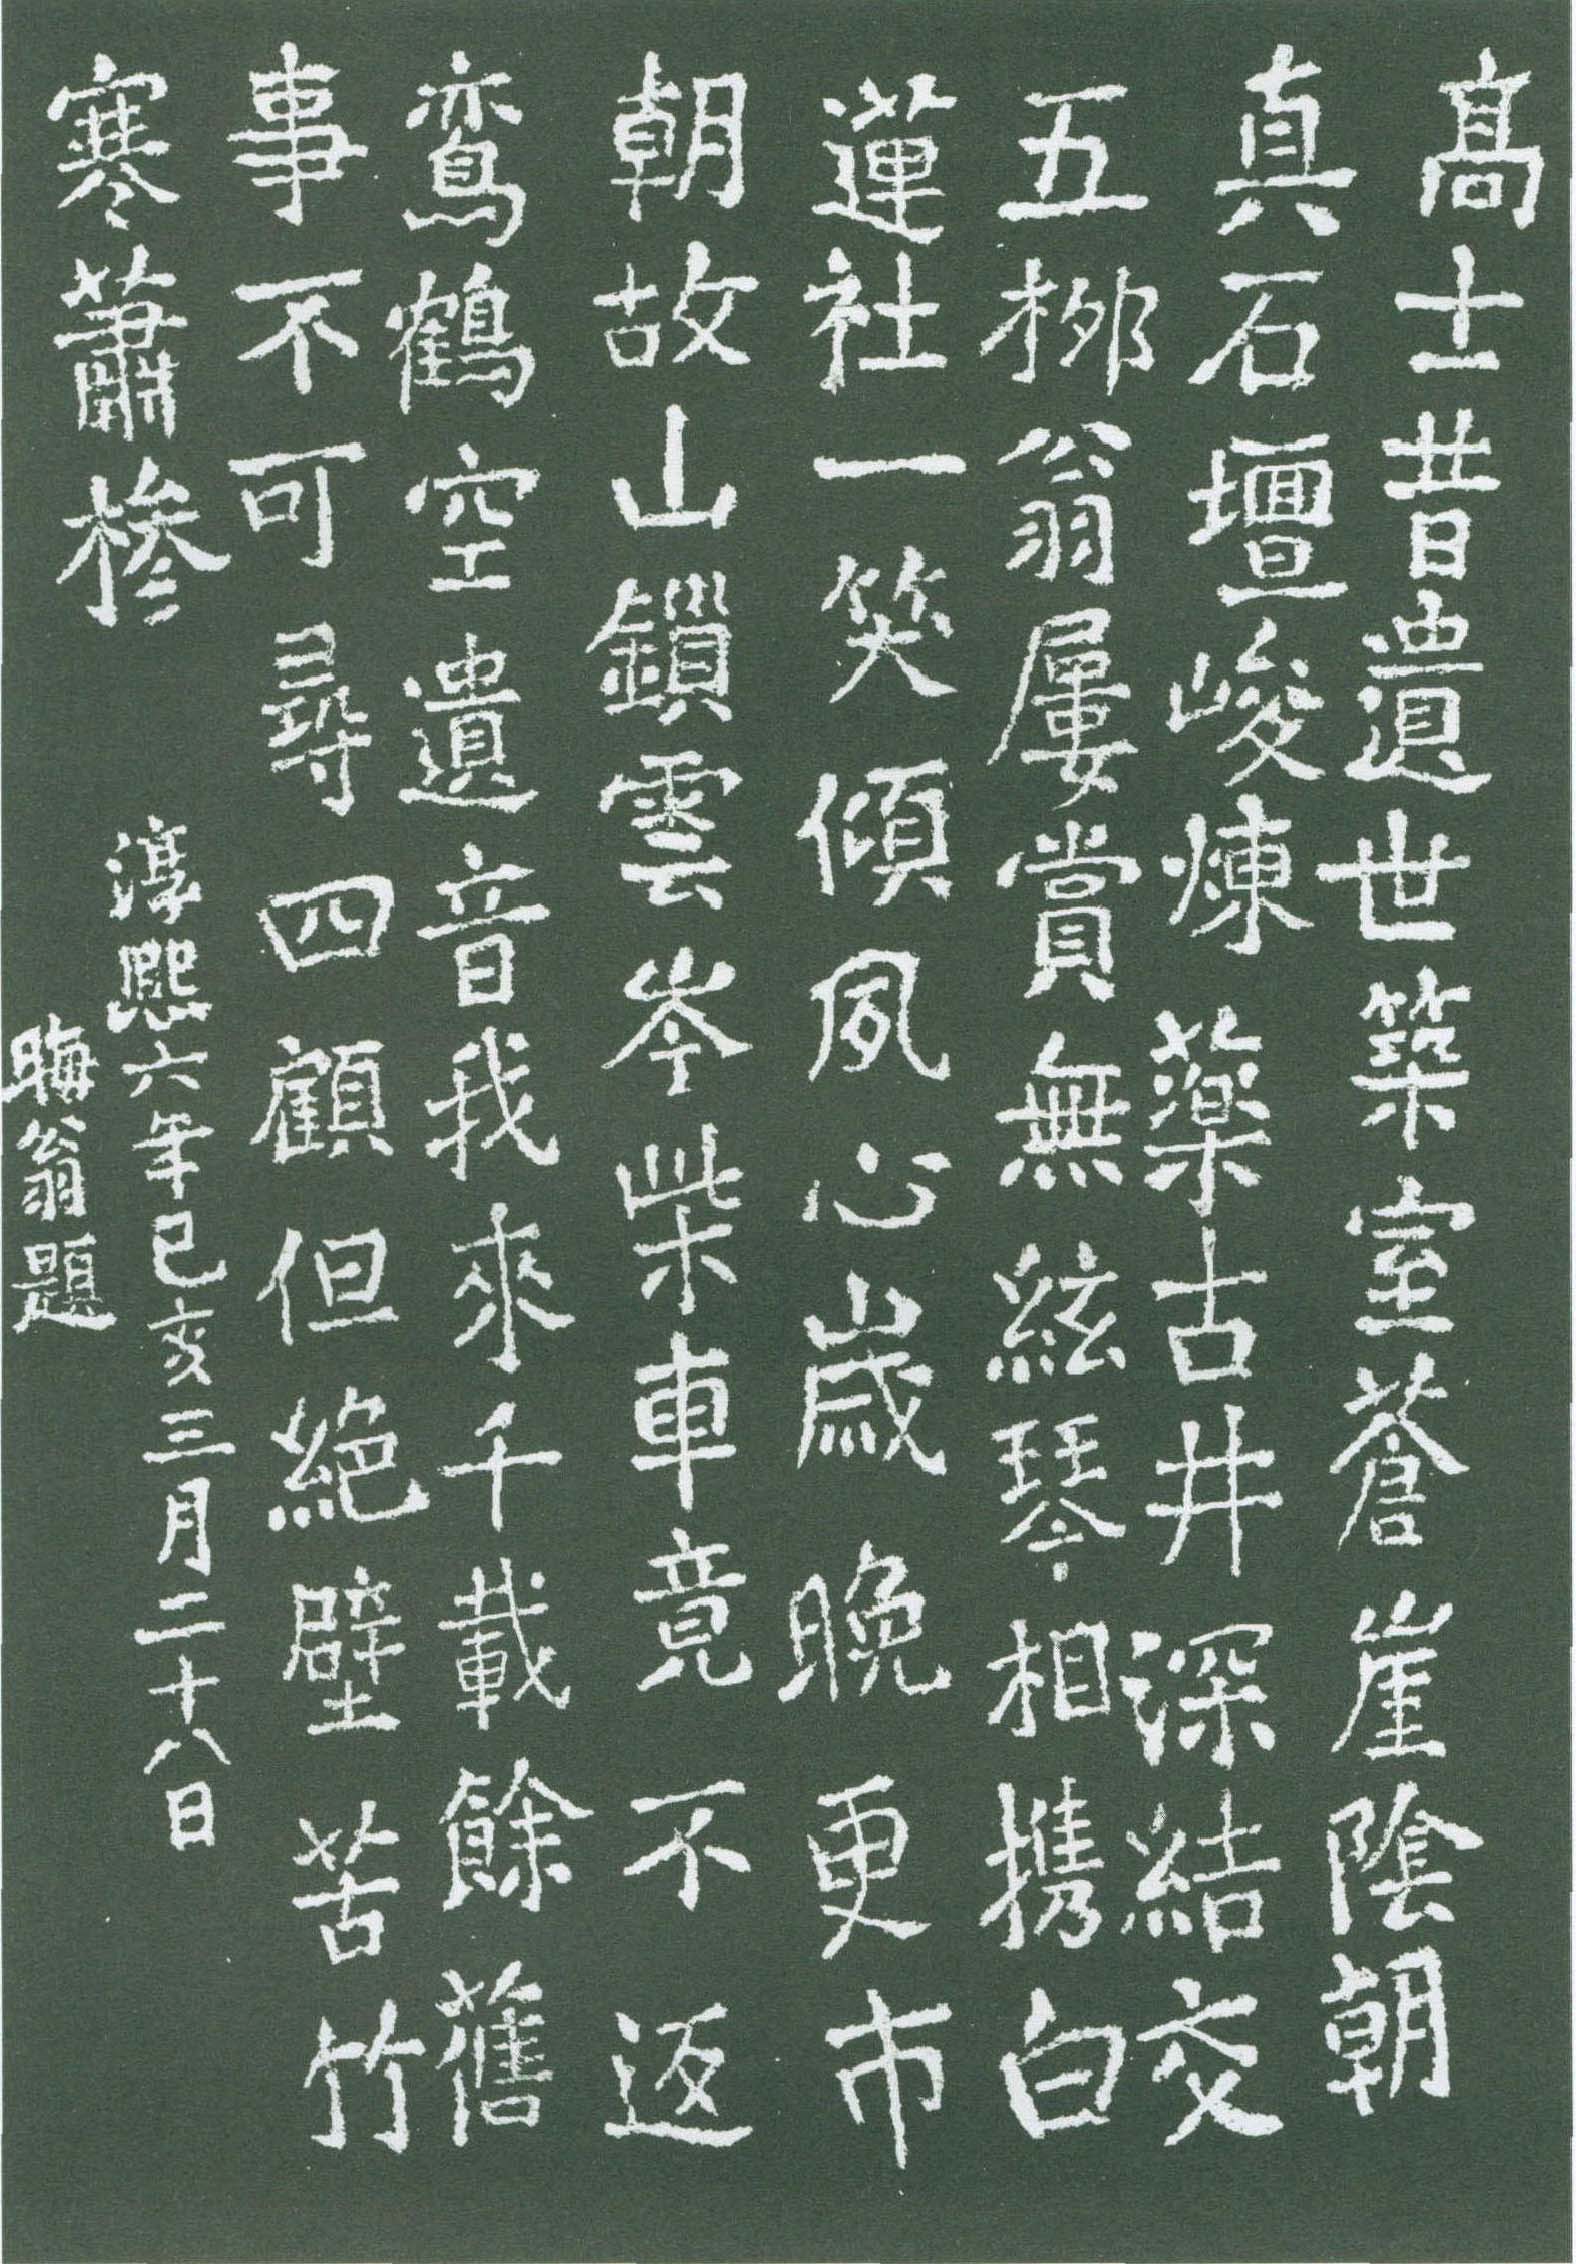 髙士昔遺世築室蒼崖陰朝
真石壇峻煉藥古井深結交
五栁翁屢賞無絃琴相携白
蓮社一笑傾夙心歲晚更市
朝故山鎖雲岑柴車竟不返
鸞鶴空遺音我來千載餘舊
事不可尋四顧但絕壁苦竹
寒蕭槮
淳熙六年己亥三月二十八日
晦翁題